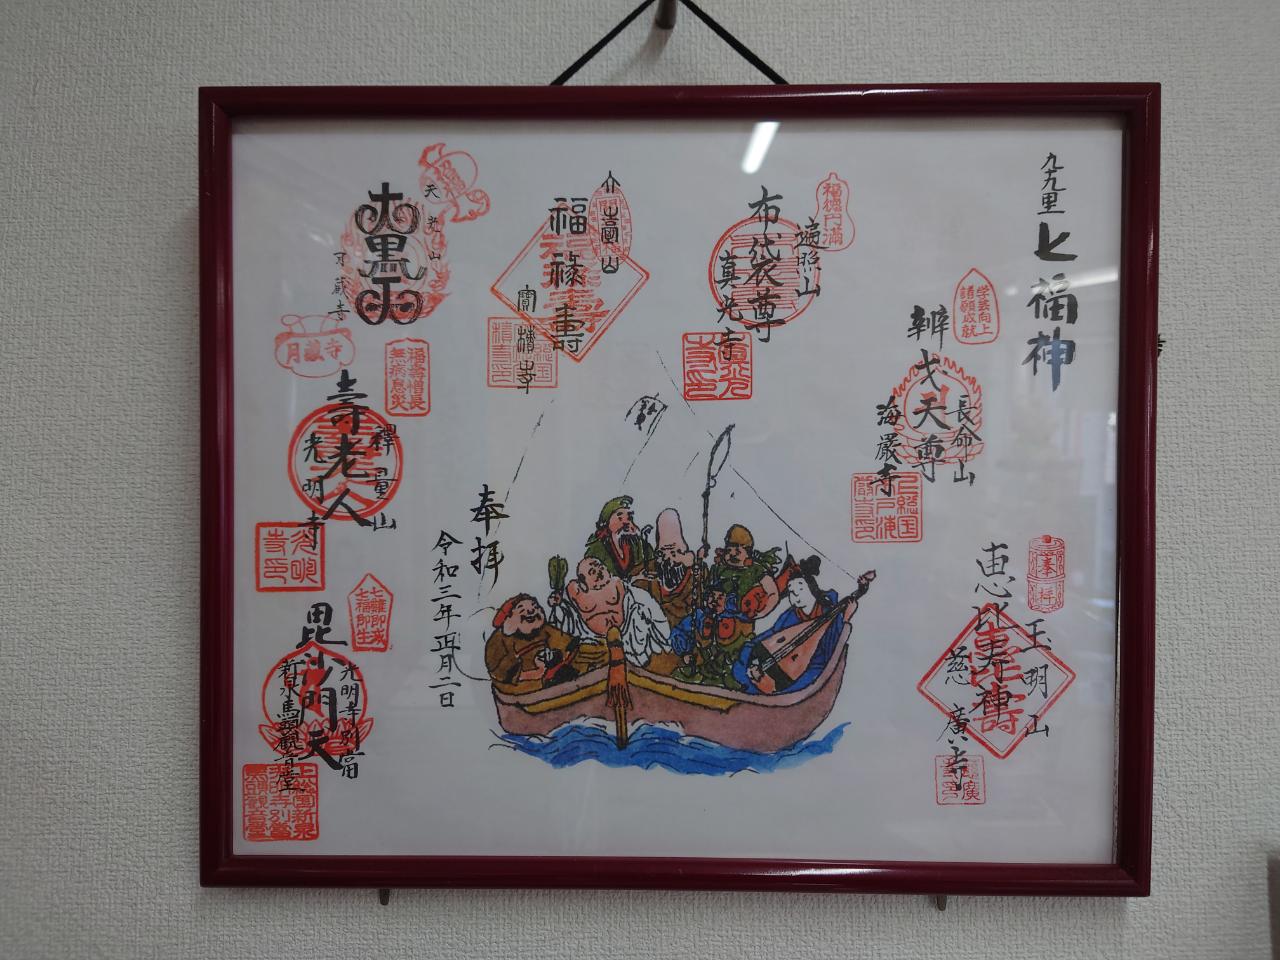 九十九里
七福神
奉拝
玉明山
恵比寿神
慈廣寺
学芸向上
諸願成就
長命山
辨天尊
海巌寺
福徳円満
遍照山
布袋尊
真光寺
真光寺印
山
福禄壽
寶積寺
天光山
大黒天
月蔵寺
月蔵寺
福壽増長
無病息災
壽老人
光明寺
光明寺印
七難即滅
七福即生
光明寺別當
毘沙門天
馬頭観音堂
奉拝
令和三年正月二日